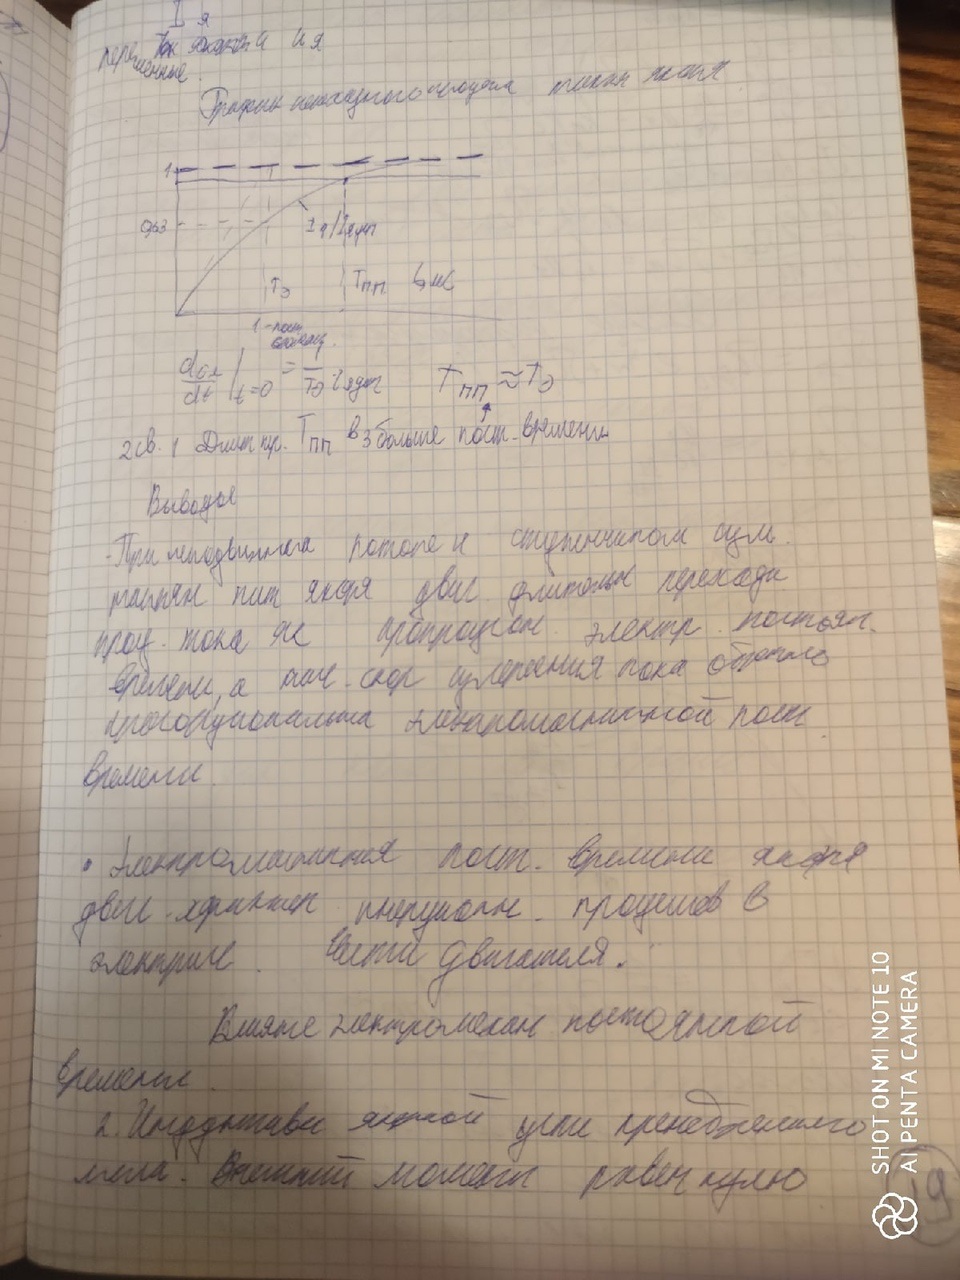 I я
Ток якоря i я
переменные.
График переходного процесса тока якоря
1
0,63
Iя/Iяуст
Tэ Tпп t, мс
1 - пост. времени.
diя/dt |t=0 = 1/Tэ iяуст Tпп ≈ Tэ
2св. 1 Длит пр. Tпп в 3 больше пост. времени
Выводы
- При неподвижном роторе и ступенчатом
пит якоря двиг длительн переходн
проц. тока як пропорцион. электр. постоян.
времени, а нач. скор тока обратно
пропорциональна электромагнитной пост
времени.
• Электромагнитная пост. времени якоря
двиг. характер инерционн. процессов в
электрич. части двигателя.
Влияние электромехан постоянной
времени
2. Индуктивн якорной цепи пренебрежимо
мала. Внешний момент равен нулю
SHOT ON MI NOTE 10
AI PENTA CAMERA